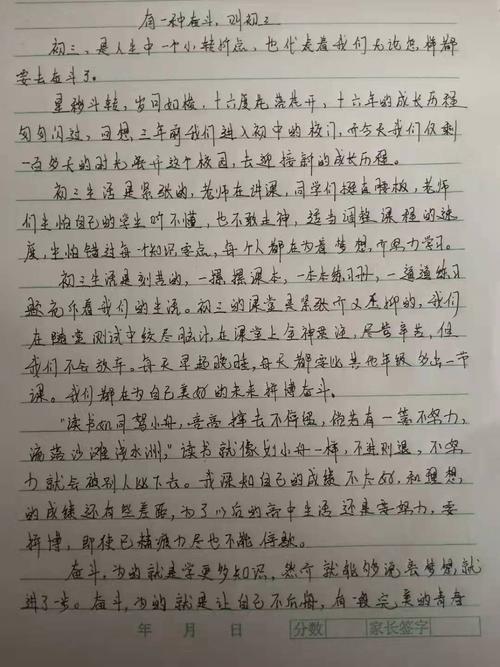 有一种奋斗，叫初三
初三，是人生中一个小转折点，也代表着我们无论怎样都
要去奋斗了。
星移斗转，岁月如梭，十六度花落花开，十六年的成长历程
匆匆闪过，回想三年前我们进入初中的校门，而今天我们仅剩
一百多天的时光离开这个校园，去迎接新的成长历程。
初三生活是紧张的，老师在讲课，同学们挺直腰板，老师
们生怕自己的学生听不懂，也不敢走神，适当调整课程的速
度，生怕错过每一个知识要点，每个人都在为着梦想而努力学习。
初三生活是刻苦的，一摞摞课本，一本本练习册，一道道练习
题充斥着我们的生活。初三的课堂是紧张而又压抑的，我们
在随堂测试中绞尽脑汁，在课堂上全神贯注，尽管辛苦，但
我们不会放弃。每天早起晚睡，每天都要比其他年级多出一节
课。我们都在为自己美好的未来拼博奋斗。
“读书如同驾小舟，亮亮撑去不停留，倘若有一篙不努力，
流落沙滩浅水洲，”读书就像划小舟一样，不进则退，不努
力就会被别人比下去。我深知自己的成绩不太好，和理想
的成绩还有些差距，为了以后的高中生活还是要努力，要
拼博，即使已精疲力尽也不能停歇。
奋斗，为的就是学更多知识，然而就能够说离梦想就
进了一步。奋斗，为的就是让自己不后悔，有一段完美的青春
年 月 日 分数 家长签字